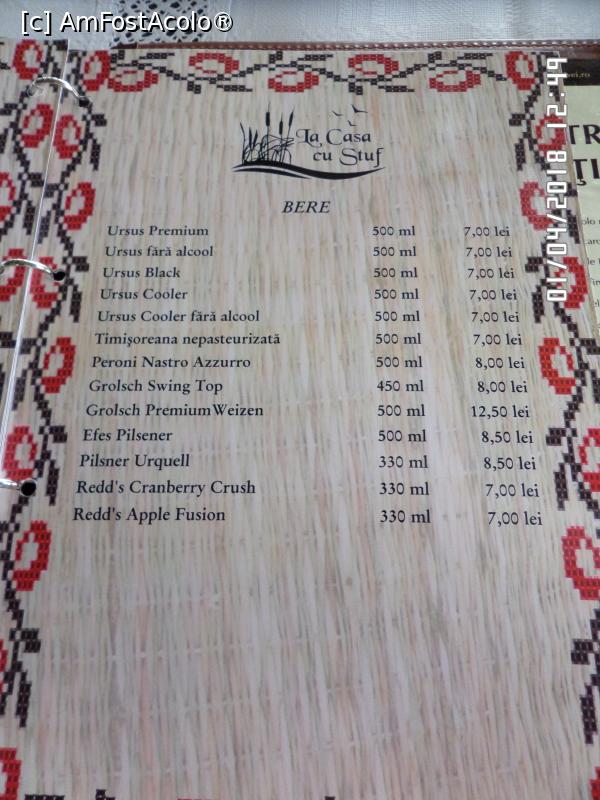 [c] AmFostAcolo®
La Casa
cu Stuf
BERE
Ursus Premium 500 ml 7,00 lei
Ursus fără alcool 500 ml 7,00 lei
Ursus Black 500 ml 7,00 lei
Ursus Cooler 500 ml 7,00 lei
Ursus Cooler fără alcool 500 ml 7,00 lei
Timişoreana nepasteurizată 500 ml 7,00 lei
Peroni Nastro Azzurro 500 ml 8,00 lei
Grolsch Swing Top 450 ml 8,00 lei
Grolsch PremiumWeizen 500 ml 12,50 lei
Efes Pilsener 500 ml 8,50 lei
Pilsner Urquell 330 ml 8,50 lei
Redd's Cranberry Crush 330 ml 7,00 lei
Redd's Apple Fusion 330 ml 7,00 lei
01/04/2018 12:44